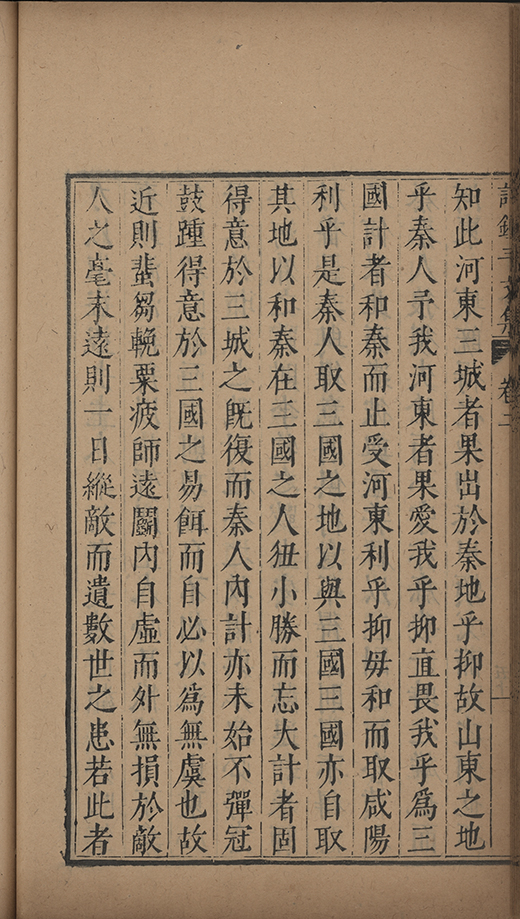 文集 卷二
知此河東三城者果出於秦地乎抑故山東之地
乎秦人予我河東者果愛我乎抑直畏我乎爲三
國計者和秦而止受河東利乎抑毋和而取咸陽
利乎是秦人取三國之地以與三國三國亦自取
其地以和秦在三國之人狃小勝而忘大計者固
得意於三城之旣復而秦人內計亦未始不彈冠
鼓踵得意於三國之易餌而自必以爲無虞也故
近則蜚芻輓粟疲師遠鬬內自虛而外無損於敵
人之毫末遠則一日縱敵而遺數世之患若此者